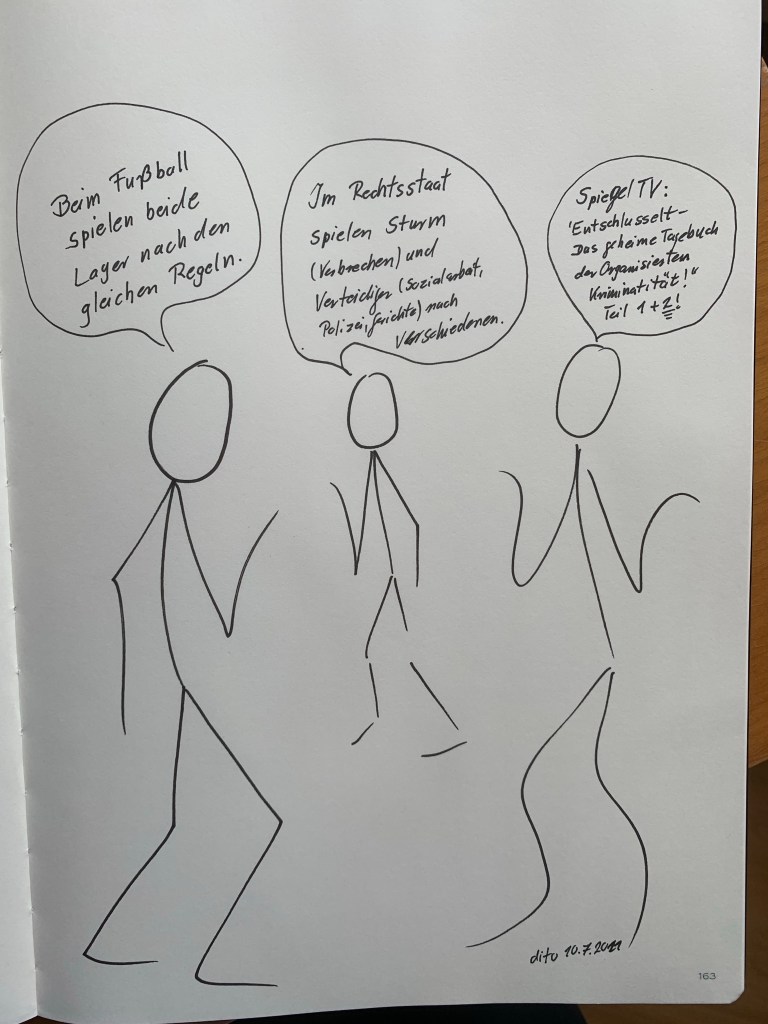 Beim Fußball
spielen beide
Lager nach den
gleichen Regeln.
Im Rechtsstaat
spielen Sturm
(Verbrechen) und
Verteidiger (Sozialarbeit,
Polizei, Gerichte) nach
verschiedenen.
Spiegel TV:
"Entschlusselt-
Das geheime Tagebuch
der Organisierten
Kriminatität!"
Teil 1+2!
dito 10.7.
163